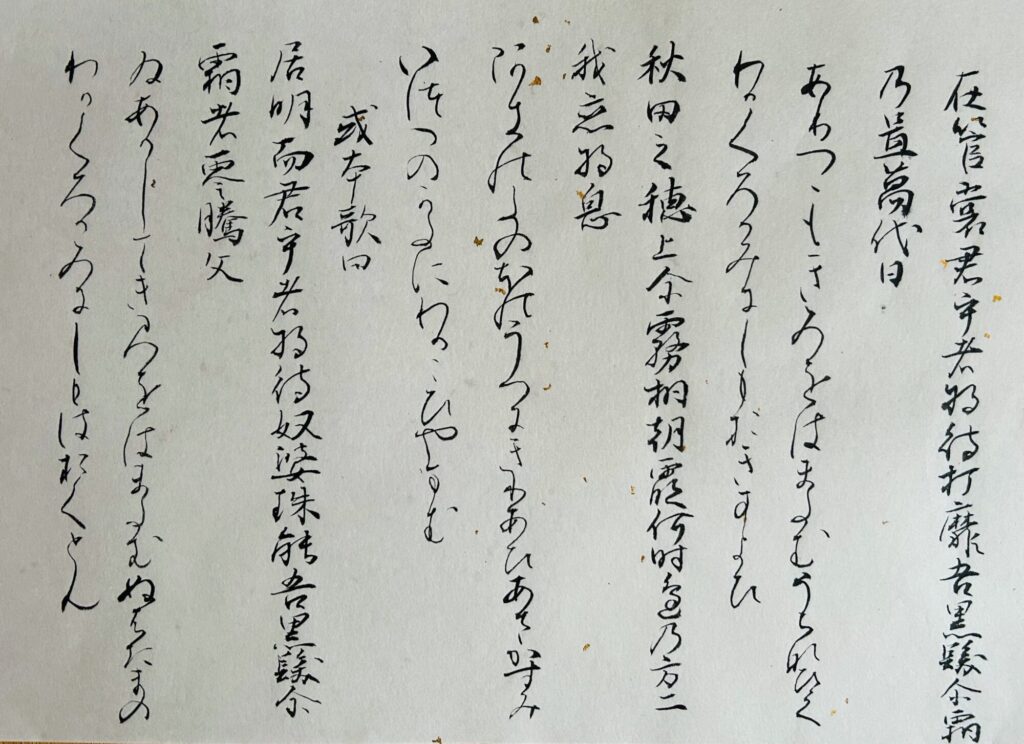 在管裳君乎者将待打靡吾黒髪尓霜
乃置萬代日
ありつゝもきみをはまたむうちなひく
わかくろかみにしもおきまよひ
秋田之穂上尓霧相朝霞何時邊乃方二
我恋将息
あきのたのほのうへにきりあひあさかすみ
いつへのかたにわかこひやまむ
或本歌曰
居明而君乎者将待奴婆珠能吾黒髪尓
霜者零騰文
ゐあかしてきみをはまたむぬはたまの
わかくろかみにしもはおくとも